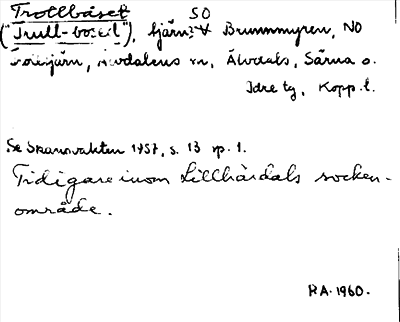 Trollbåset SO
("Trull-båset"), tjärn? V Brummyren, NO
m, Älvdals, Särna o.
Idre tg, Kopp. l.
Se Skansvakten 1957, s. 13 sp. 1.
Tidigare inom Lillhärdals socken-
område.
RA. 1960.